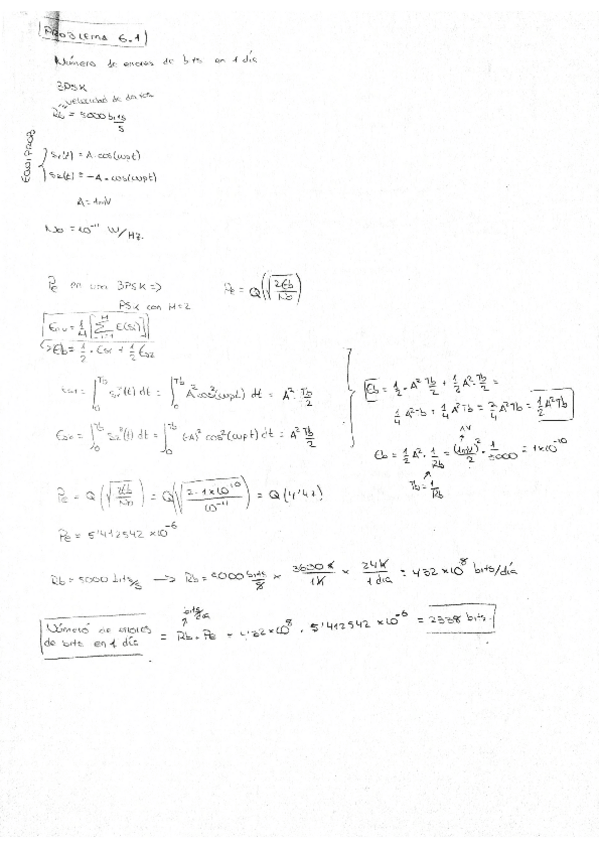 PROBLEMA 6.1
Número de errores de bits en 1 día
BPSK
velocidad de
Rb = 5000 bits/s
EQUIPROB
S1(t) = A cos(ωpt)
S2(t) = -A cos(ωpt)
A = 1mV
No = 10^-11 W/Hz.
Pe en una BPSK => Pe = Q(√(2Eb/No))
PSK con M=2
[∑ E(Si)]
Eb = 1/2 · Es1 + 1/2 Es2
Es1 = ∫0^Tb S1²(t) dt = ∫0^Tb A² cos²(ωpt) dt = A² · Tb/2
Es2 = ∫0^Tb S2²(t) dt = ∫0^Tb (-A)² cos²(ωpt) dt = A² Tb/2
Eb = 1/2 · A² Tb/2 + 1/2 A² · Tb/2 =
1/4 A² Tb + 1/4 A² Tb = 2/4 A² Tb = 1/2 A² Tb
Eb = 1/2 A² · 1/Rb = (1mV)²/2 · 1/5000 = 1x10^-10
Tb = 1/Rb
Pe = Q(√(2Eb/No)) = Q(√(2·1x10^-10/10^-11)) = Q(4'47)
Pe = 5'412542 x10^-6
Rb = 5000 bits/s → Rb = 5000 bits/s x 3600 s/1h x 24h/1 día = 4'32 x10^8 bits/día
bits/día
Número de errores de bits en 1 día = Rb · Pe = 4'32 x10^8 · 5'412542 x10^-6 = 2338 bits.